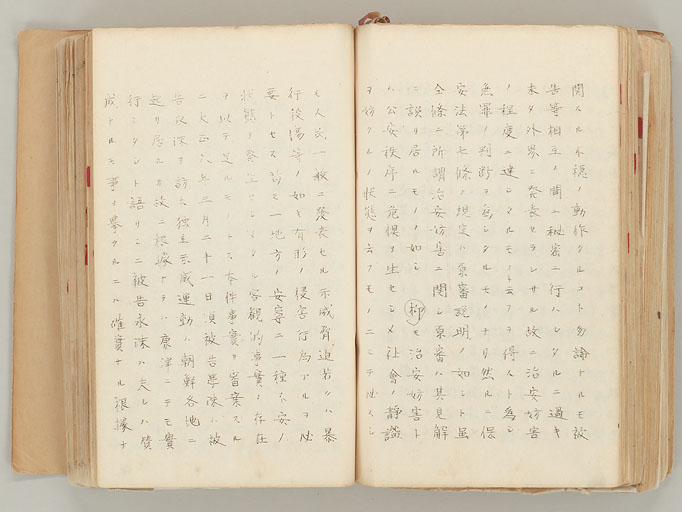 関スル不穏ノ動作タルコト勿論ナルモ被
告等相互ノ間ニ秘密ニ行ハレタルニ過キ
未タ外界ニ発表セラレサル故ニ治安妨害
ノ程度ニ達シタルモノト云フヲ得スト為シ
無罪ノ判断ヲ為シタルモノナリ然ルニ保
安法第七條ノ規定ハ原審説明ノ如シト虽
全條ニ所謂治安妨害ニ関シ原審ハ其見解
ヲ誤リ居ルモノノ如シ 抑モ治安妨害ト
ハ公安秩序ニ危惧ヲ生セシメ社会ノ静謐
ヲ妨クルノ状態ヲ云フモノニシテ必スシ
モ人民一般ニ発表セル示威脅迫若クハ暴
行役湯等ノ如キ有形ノ侵害行為アルヲ必
要トセス苟モ一地方ノ安寧ニ一種不安ノ
状態ヲ発生セシメタル客観的事実ノ存在
ヲ以テ足ルモノトス本件事実ヲ審案スル
ニ大正八年三月二十一日頃被告學陳ハ被
告永深ヲ訪ヒ独立示威運動ハ朝鮮各地ニ
起リ居ルカ故ニ根據ナラハ康津ニテモ實
行シタシト語リシニ被告永深ハ夫レハ賛
成ナルモ事ヲ擧クルニハ確實ナル根據ナ